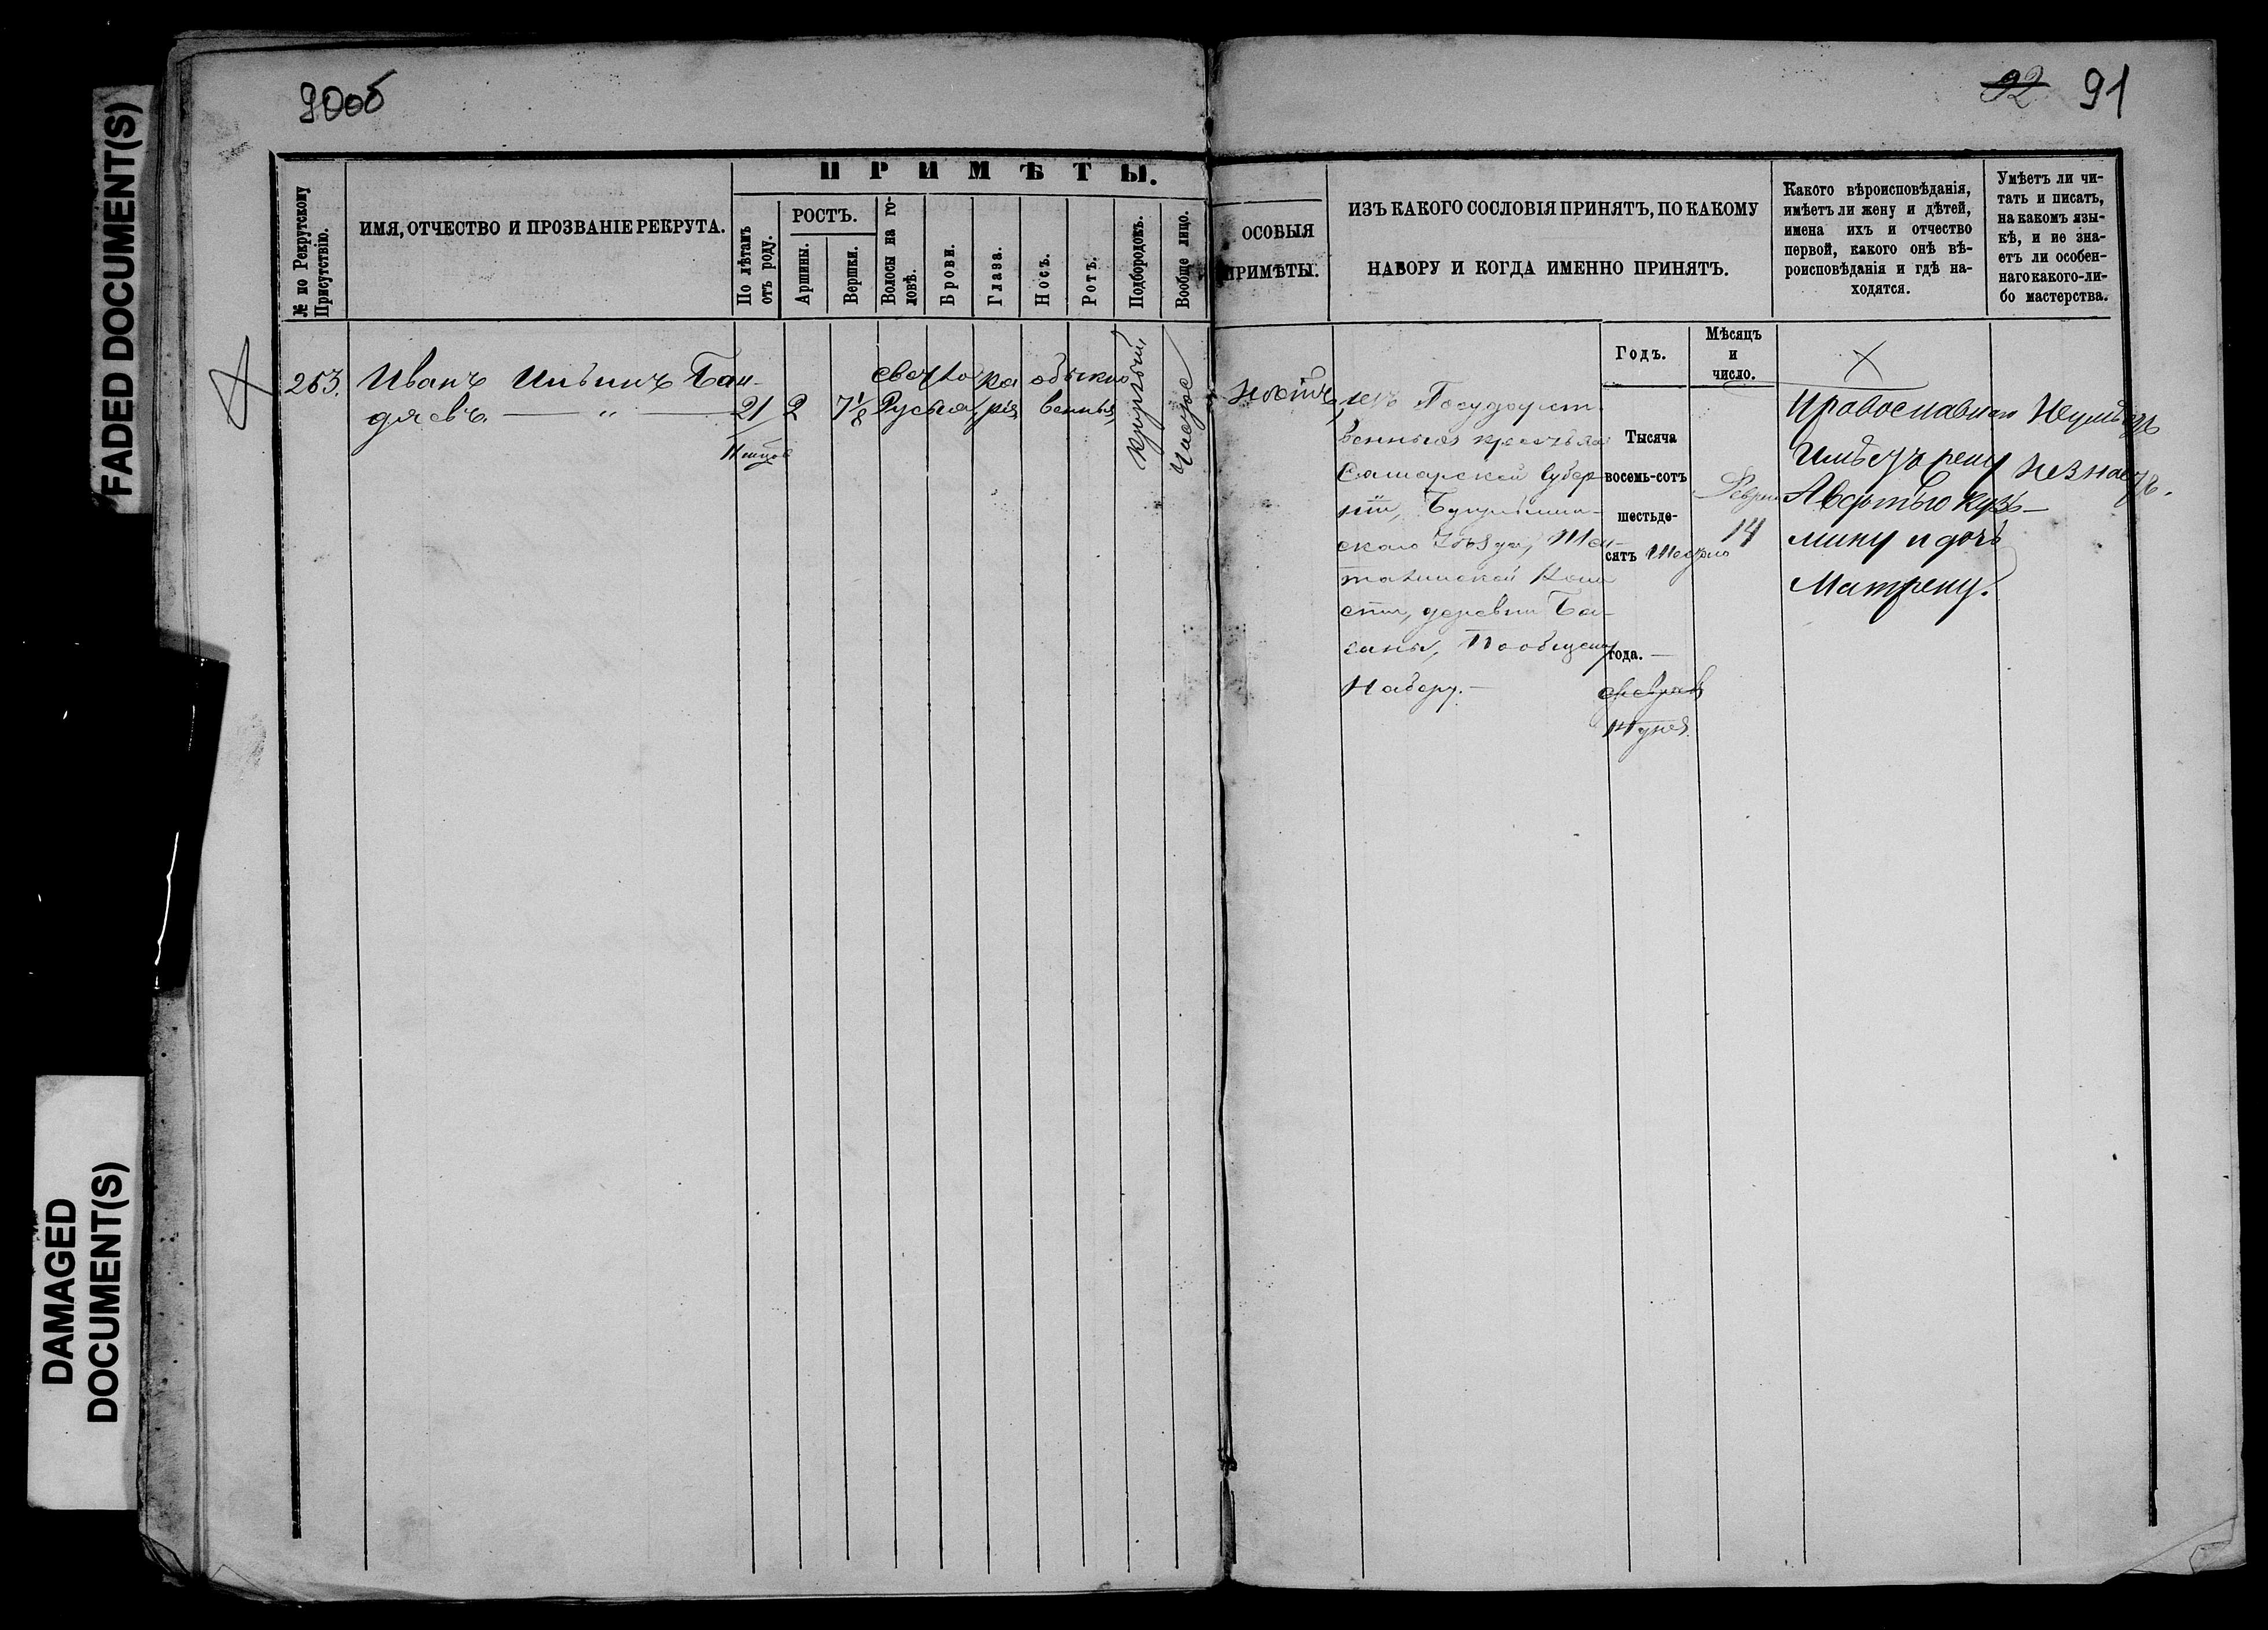 90об
92 91
FADED DOCUMENT(S)
DAMAGED
DOCUMENT(S)
№ по Рекрутскому
Присутствію.
ИМЯ, ОТЧЕСТВО И ПРОЗВАНІЕ РЕКРУТА.
ПРИМѢТЫ.
По лѣтамъ
отъ роду.
РОСТЪ.
Аршины.
Вершки.
Волосы на го-
ловѣ.
Брови.
Глаза.
Носъ.
Ротъ.
Подбородокъ.
Вообще лицо.
ОСОБЫЯ
ПРИМѢТЫ.
ИЗЪ КАКОГО СОСЛОВІЯ ПРИНЯТЪ, ПО КАКОМУ
НАБОРУ И КОГДА ИМЕННО ПРИНЯТЪ.
Какого вѣроисповѣданія,
имѣетъ ли жену и дѣтей,
имена ихъ и отчество
первой, какого онѣ вѣ-
роисповѣданія и гдѣ на-
ходятся.
Умѣетъ ли чи-
тать и писать,
на какомъ язы-
кѣ, и не зна-
етъ ли особен-
наго какого-ли-
бо мастерства.
Годъ.
Мѣсяцъ
и
число.
253.
Иванъ Ильинъ Бан-
дяевъ. — „ —
21
2
7 1/8
свѣтло
Русыя
ка
рія
обыкно
венныя
круглый
Чистое
Нѣтъ
изъ Государст-
венныхъ крестьян
Самарской Губер-
ніи, Бугульмин-
скаго Уѣзда,
деревни Ба-
Пообщему
Набору.—
Тысяча
восемь-сотъ
шестьде-
сятъ
года. —
14 дня.
Февраля
14
Православнаго
Имѣетъ жену
Авдотью Кузь-
мину и дочь
Матрену.
Неумѣетъ
Незнаетъ.